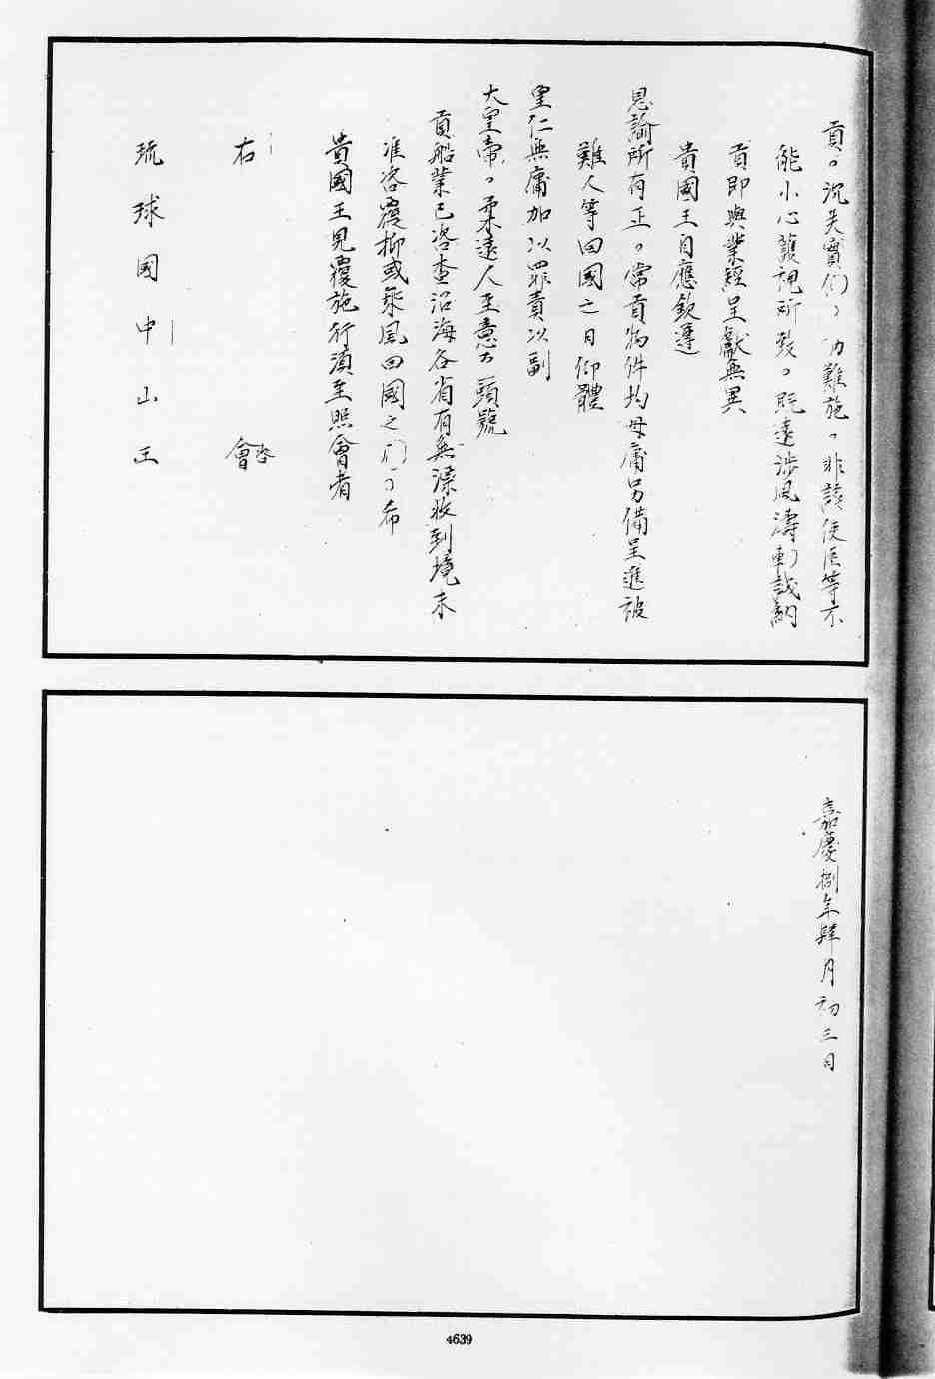 貢。沉失實們、難施。非該使臣等不
能小心護視所致。既遠涉風濤誠納
貢即與業經呈獻無異
貴國王自應欽遵
恩諭所有正。常貢物件均毋庸另備呈進被
難人等回國之日仰體
皇仁無庸加以罪責以副
大皇帝。柔遠人至意 頭號
貢船業已咨查沿海各省有無漂收到境未
准咨覆抑或乘風回國之。希
貴國王見覆施行須至照會者
右 咨會
琉球國中山王
嘉慶捌年肆月初三日
4639